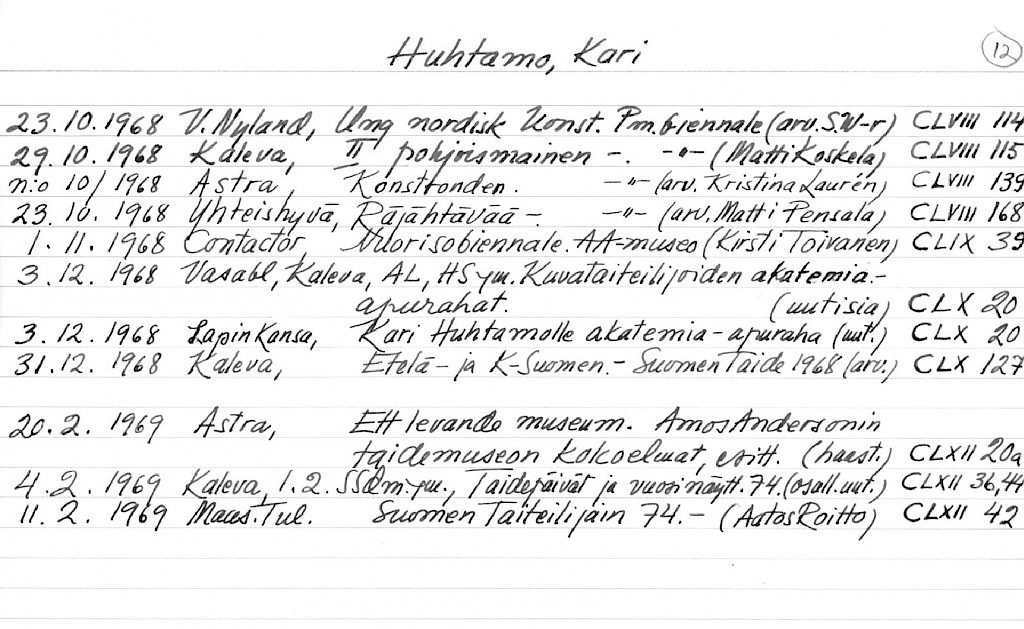 Huhtamo, Kari
12
23.10.1968 V. Nyland, Ung nordisk konst. Pm. biennale (arv. S.W-r) CLVIII 114
29.10.1968 Kaleva, II pohjoismainen -. -"- (Matti Koskela) CLVIII 115
n:o 10/1968 Astra, Konstronden. -"- (arv. Kristina Laurén) CLVIII 139
23.10.1968 Yhteishyvä, Räjähtävää - -"- (arv. Matti Pensala) CLVIII 168
1.11.1968 Contactor, Nuorisobiennale. AA-museo (Kirsti Toivanen) CLIX 35
3.12.1968 Vasabl, Kaleva, AL, HS ym. Kuvataiteilijoiden akatemia-
apurahat. (uutisia) CLX 20
3.12.1968 Lapin Kansa, Kari Huhtamolle akatemia-apuraha (uut.) CLX 20
31.12.1968 Kaleva, Etelä- ja K-Suomen.- Suomen Taide 1968 (arv.) CLX 127
20.2.1969 Astra, Ett levande museum. Amos Andersonin
taidemuseon kokoelmat, esitt. (haast.) CLXII 20a
4.2.1969 Kaleva, 1.2. SSd m-ym., Taidepäivät ja vuosinäytt. 74. (osall. uut.) CLXII 36,44
11.2.1969 Maas. Tul. Suomen Taiteilijain 74.- (Aatos Roitto) CLXII 42